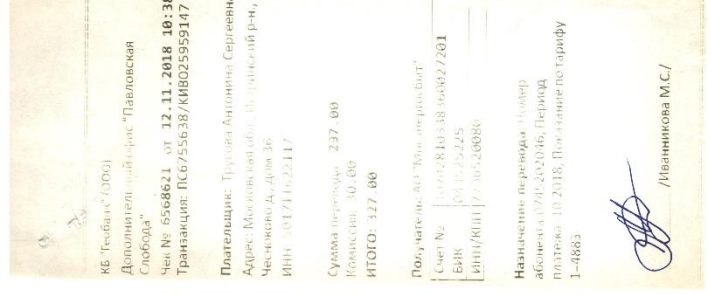 КБ "Геобанк" (ООО)
Дополнительный офис "Павловская
Слобода"
Чек № 6568621 от 12.11.2018 10:38
Транзакция: ПС6755638/КИВО25959147
Плательщик: Трусова Антонина Сергеевна
Адрес: Московская обл., Истринский р-н.,
Чесноково д., дом 36
ИНН
Сумма перевода 237.00
Комиссия: 30.00
ИТОГО: 327.00
Получатель: АО "Мосэнергосбыт"
Счет №
БИК
ИНН/КПП
Назначение перевода: Номер
абонента Период
платежа 10.2018, Показание по тарифу
1-4883
/Иванникова М.С./